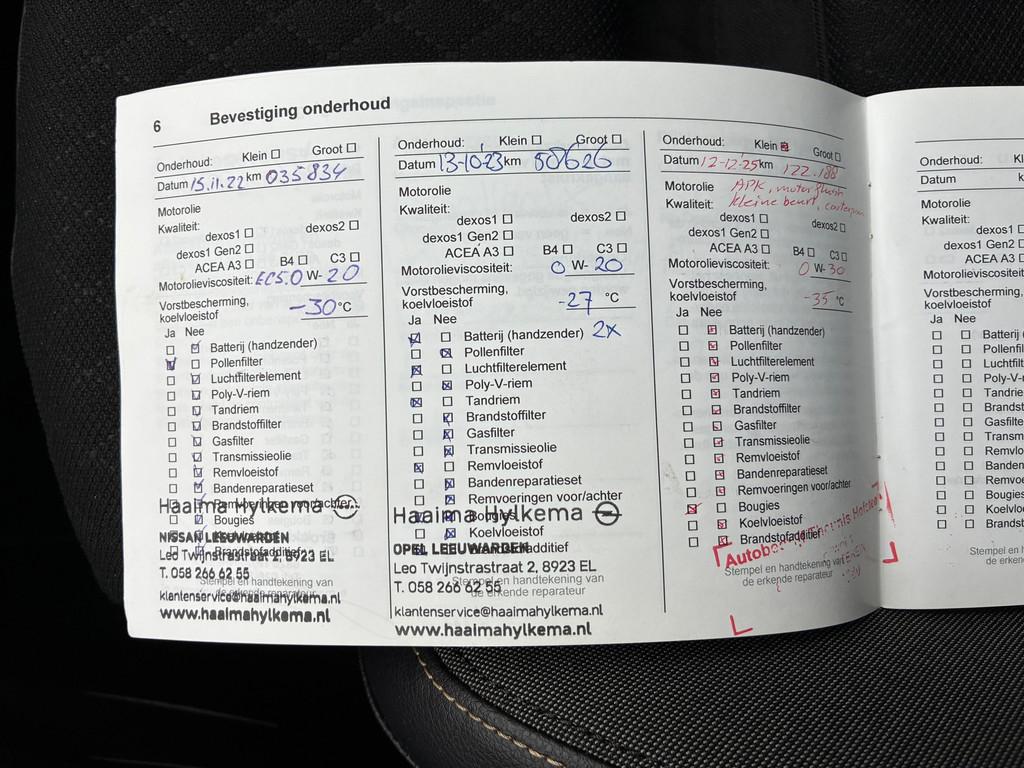 6 Bevestiging onderhoud
Onderhoud: Klein ☐ Groot ☐
Datum 15.11.22 km 035834
Motorolie
Kwaliteit:
dexos1 ☐ dexos2 ☐
dexos1 Gen2 ☐
ACEA A3 ☐ B4 ☐ C3 ☐
Motorolieviscositeit: W-20
Vorstbescherming,
koelvloeistof -30 °C
Ja Nee
Batterij (handzender)
Pollenfilter
Luchtfilterelement
Poly-V-riem
Tandriem
Brandstoffilter
Gasfilter
Transmissieolie
Remvloeistof
Bandenreparatieset
Remvoeringen voor/achter
Haaima Hylkema
Bougies
NISSAN LEEUWARDEN
Brandstofadditief
Leo Twijnstrastraat 2, 8923 EL
T. 058 266 62 55
Stempel en handtekening van
de erkende reparateur
klantenservice@haaimahylkema.nl
www.haaimahylkema.nl
Onderhoud: Klein ☐ Groot ☐
Datum 13-10-23 km 80626
Motorolie
Kwaliteit:
dexos1 ☐ dexos2 ☐
dexos1 Gen2 ☐
ACEA A3 ☐ B4 ☐ C3 ☐
Motorolieviscositeit: 0 W-20
Vorstbescherming,
koelvloeistof -27 °C
Ja Nee
Batterij (handzender) 2x
Pollenfilter
Luchtfilterelement
Poly-V-riem
Tandriem
Brandstoffilter
Gasfilter
Transmissieolie
Remvloeistof
Bandenreparatieset
Remvoeringen voor/achter
Haaima Hylkema
Bougies
Koelvloeistof
OPEL LEEUWARDEN
Brandstofadditief
Leo Twijnstrastraat 2, 8923 EL
T. 058 266 62 55
Stempel en handtekening van
de erkende reparateur
klantenservice@haaimahylkema.nl
www.haaimahylkema.nl
Onderhoud: Klein ☒ Groot ☐
Datum 12-12-25 km 122.188
Motorolie APK, motorflush
Kwaliteit: kleine beurt,
dexos1 ☐ dexos2 ☐
dexos1 Gen2 ☐
ACEA A3 ☐ B4 ☐ C3 ☐
Motorolieviscositeit: 0 W-30
Vorstbescherming,
koelvloeistof -35 °C
Ja Nee
Batterij (handzender)
Pollenfilter
Luchtfilterelement
Poly-V-riem
Tandriem
Brandstoffilter
Gasfilter
Transmissieolie
Remvloeistof
Bandenreparatieset
Remvoeringen voor/achter
Bougies
Koelvloeistof
Brandstofadditief
Stempel en handtekening van
de erkende reparateur
Onderhoud:
Datum
Motorolie
Kwaliteit:
dexos1
dexos1 Gen2
ACEA A3
Motorolieviscositeit
Vorstbescherming,
koelvloeistof
Ja Nee